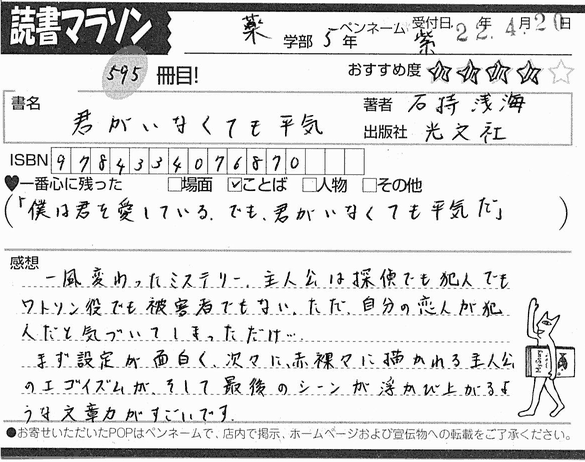 読書マラソン
薬 学部 5年 ペンネーム 紫 受付日 22年 4月 20日
595 冊目!
おすすめ度 ★★★★☆
書名 君がいなくても平気
著者 石持浅海
出版社 光文社
ISBN 9784334076870
♥一番心に残った □場面 ☑ことば □人物 □その他
(「僕は君を愛している。でも、君がいなくても平気だ」)
感想
一風変わったミステリー。主人公は探偵でも犯人でも
ワトソン役でも被害者でもない。ただ、自分の恋人が犯
人だと気づいてしまっただけ…。
まず設定が面白く、次々に、赤裸々に描かれる主人公
のエゴイズムが、そして最後のシーンが浮かび上がるよ
うな文章力がすごいです。
●お寄せいただいたPOPはペンネームで、店内で掲示、ホームページおよび宣伝物への転載をご了承ください。